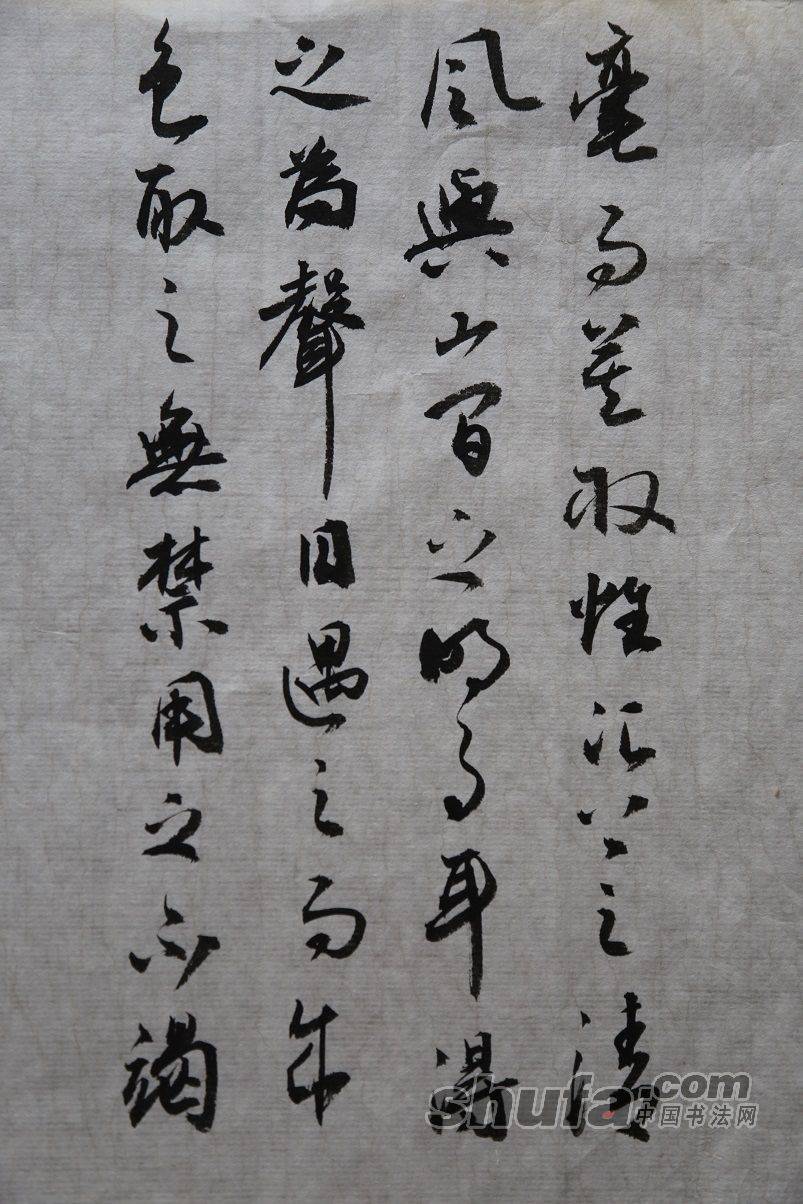 毫而莫取惟江上之清
風與山間之明月耳得
之為聲目遇之而成
色取之無禁用之不竭
shufa.com
中国书法网